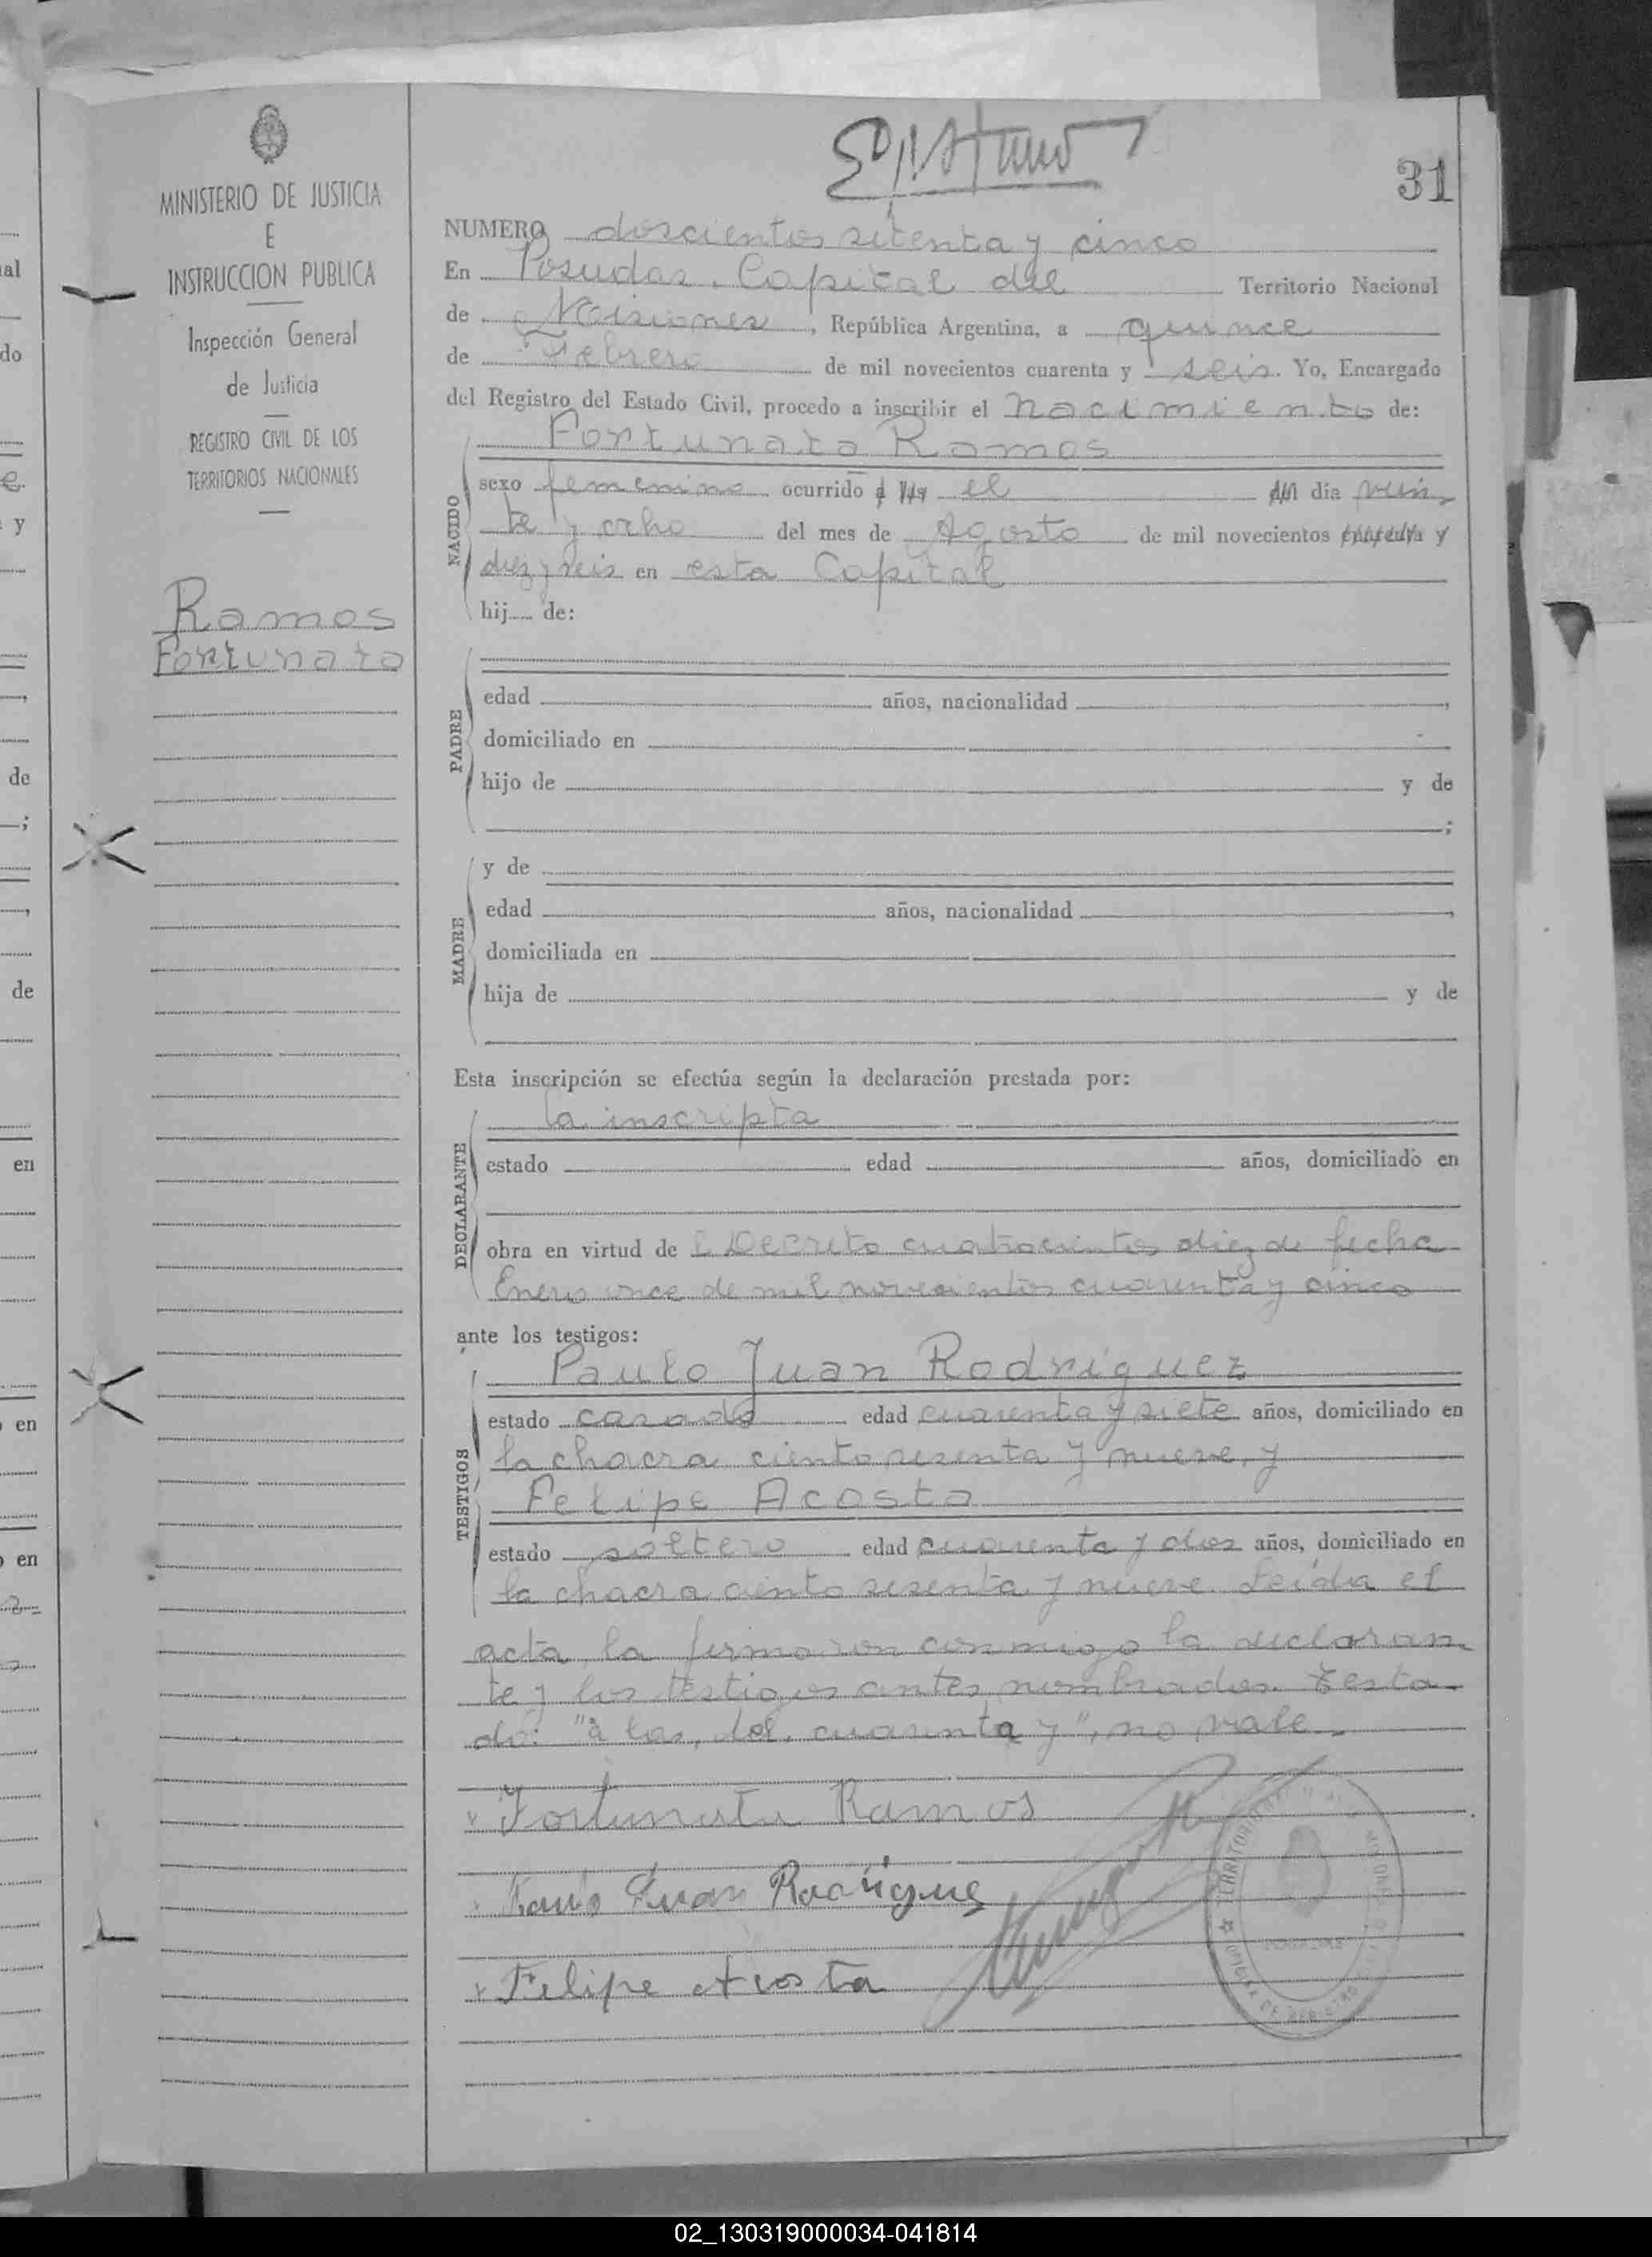 MINISTERIO DE JUSTICIA
E
INSTRUCCION PUBLICA
Inspección General
de Justicia
REGISTRO CIVIL DE LOS
TERRITORIOS NACIONALES
Ramos
Fortunata
31
NUMERO doscientos setenta y cinco
En Posadas, Capital del Territorio Nacional
de Misiones, República Argentina, a quince
de Febrero de mil novecientos cuarenta y seis. Yo, Encargado
del Registro del Estado Civil, procedo a inscribir el nacimiento de:
Fortunata Ramos
NACIDO
sexo femenino ocurrido a las el del dia vein-
te y ocho del mes de Agosto de mil novecientos cuarenta y
diez y seis en esta Capital
hij de:
PADRE
edad años, nacionalidad ,
domiciliado en
hijo de y de
;
MADRE
y de
edad años, nacionalidad ,
domiciliada en
hija de y de
Esta inscripción se efectúa según la declaración prestada por:
DECLARANTE
la inscripta
estado edad años, domiciliado en
obra en virtud de l Decreto cuatrocientos diez de fecha
Enero once de mil novecientos cuarenta y cinco
ante los testigos:
TESTIGOS
Paulo Juan Rodriguez
estado casado edad cuarenta y siete años, domiciliado en
la chacra ciento sesenta y nueve, y
Felipe Acosta
estado soltero edad cuarenta y dos años, domiciliado en
la chacra ciento sesenta y nueve. Leída el
acta, la firmaron conmigo la declaran-
te y los testigos antes nombrados. Testa-
do: "a las, del, cuarenta y", no vale.
Fortunata Ramos
Juan Rodrigues
Felipe Acosta
al
do
e
y
de
;
de
en
en
en
02_130319000034-041814